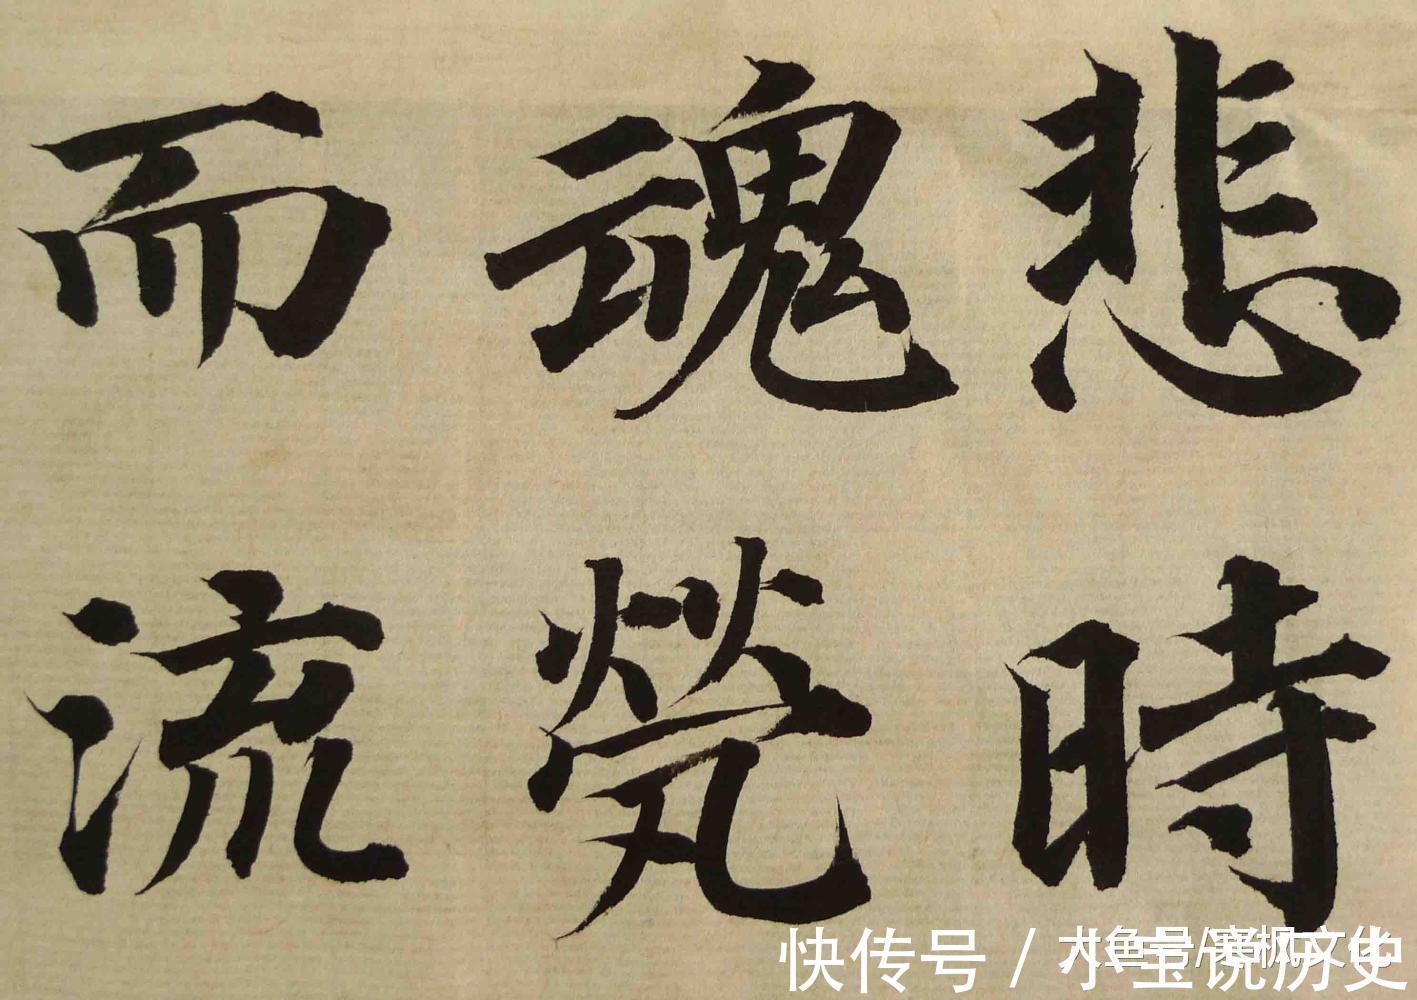 悲時
魂煢
而流
快传号 / 小宝说历史